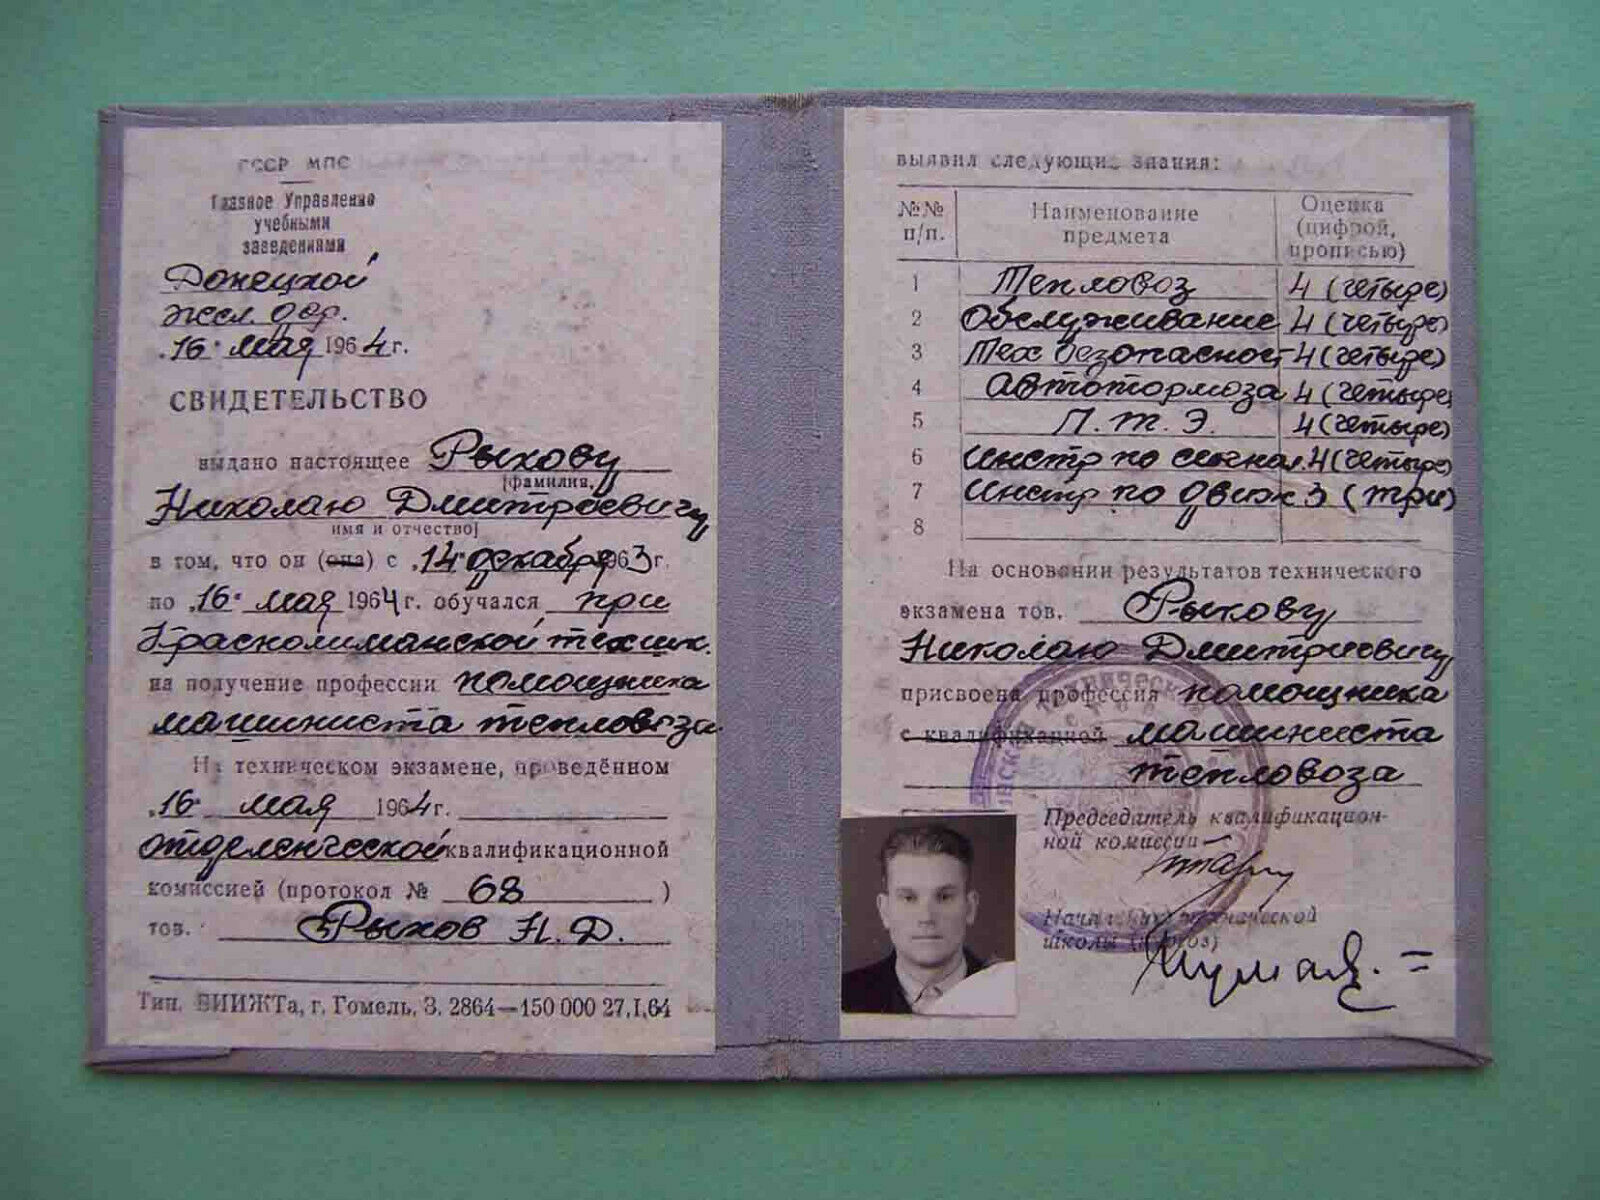 СССР МПС
Главное Управление
учебными
заведениями
Донецкой
жел. дор.
"16" мая 1964 г.
СВИДЕТЕЛЬСТВО
выдано настоящее Рыхову
(фамилия,
Николаю Дмитриевичу
имя и отчество)
в том, что он (она) с "14" декабря 1963 г.
по "16" мая 1964 г. обучался при
Краснолиманской тех. шк.
на получение профессии помощника
машиниста тепловоза.
На техническом экзамене, проведённом
"16" мая 1964 г.
отделенческой квалификационной
комиссией (протокол № 68)
тов. Рыхов Н. Д.
Тип. БИИЖТа, г. Гомель, З. 2864—150 000 27.I.64
выявил следующие знания:
№№ п/п. Наименование предмета Оценка (цифрой, прописью)
1 Тепловоз 4 (четыре)
2 Обслуживание 4 (четыре)
3 Тех безопасност 4 (четыре)
4 Автотормоза 4 (четыре)
5 П. Т. Э. 4 (четыре)
6 Инстр по сигнал. 4 (четыре)
7 Инстр по движ 3 (три)
8
На основании результатов технического
экзамена тов. Рыхову
Николаю Дмитриевичу
присвоена профессия помощника
с квалификацией машиниста
тепловоза
Председатель квалификацион-
ной комиссии
Начальник технической
школы